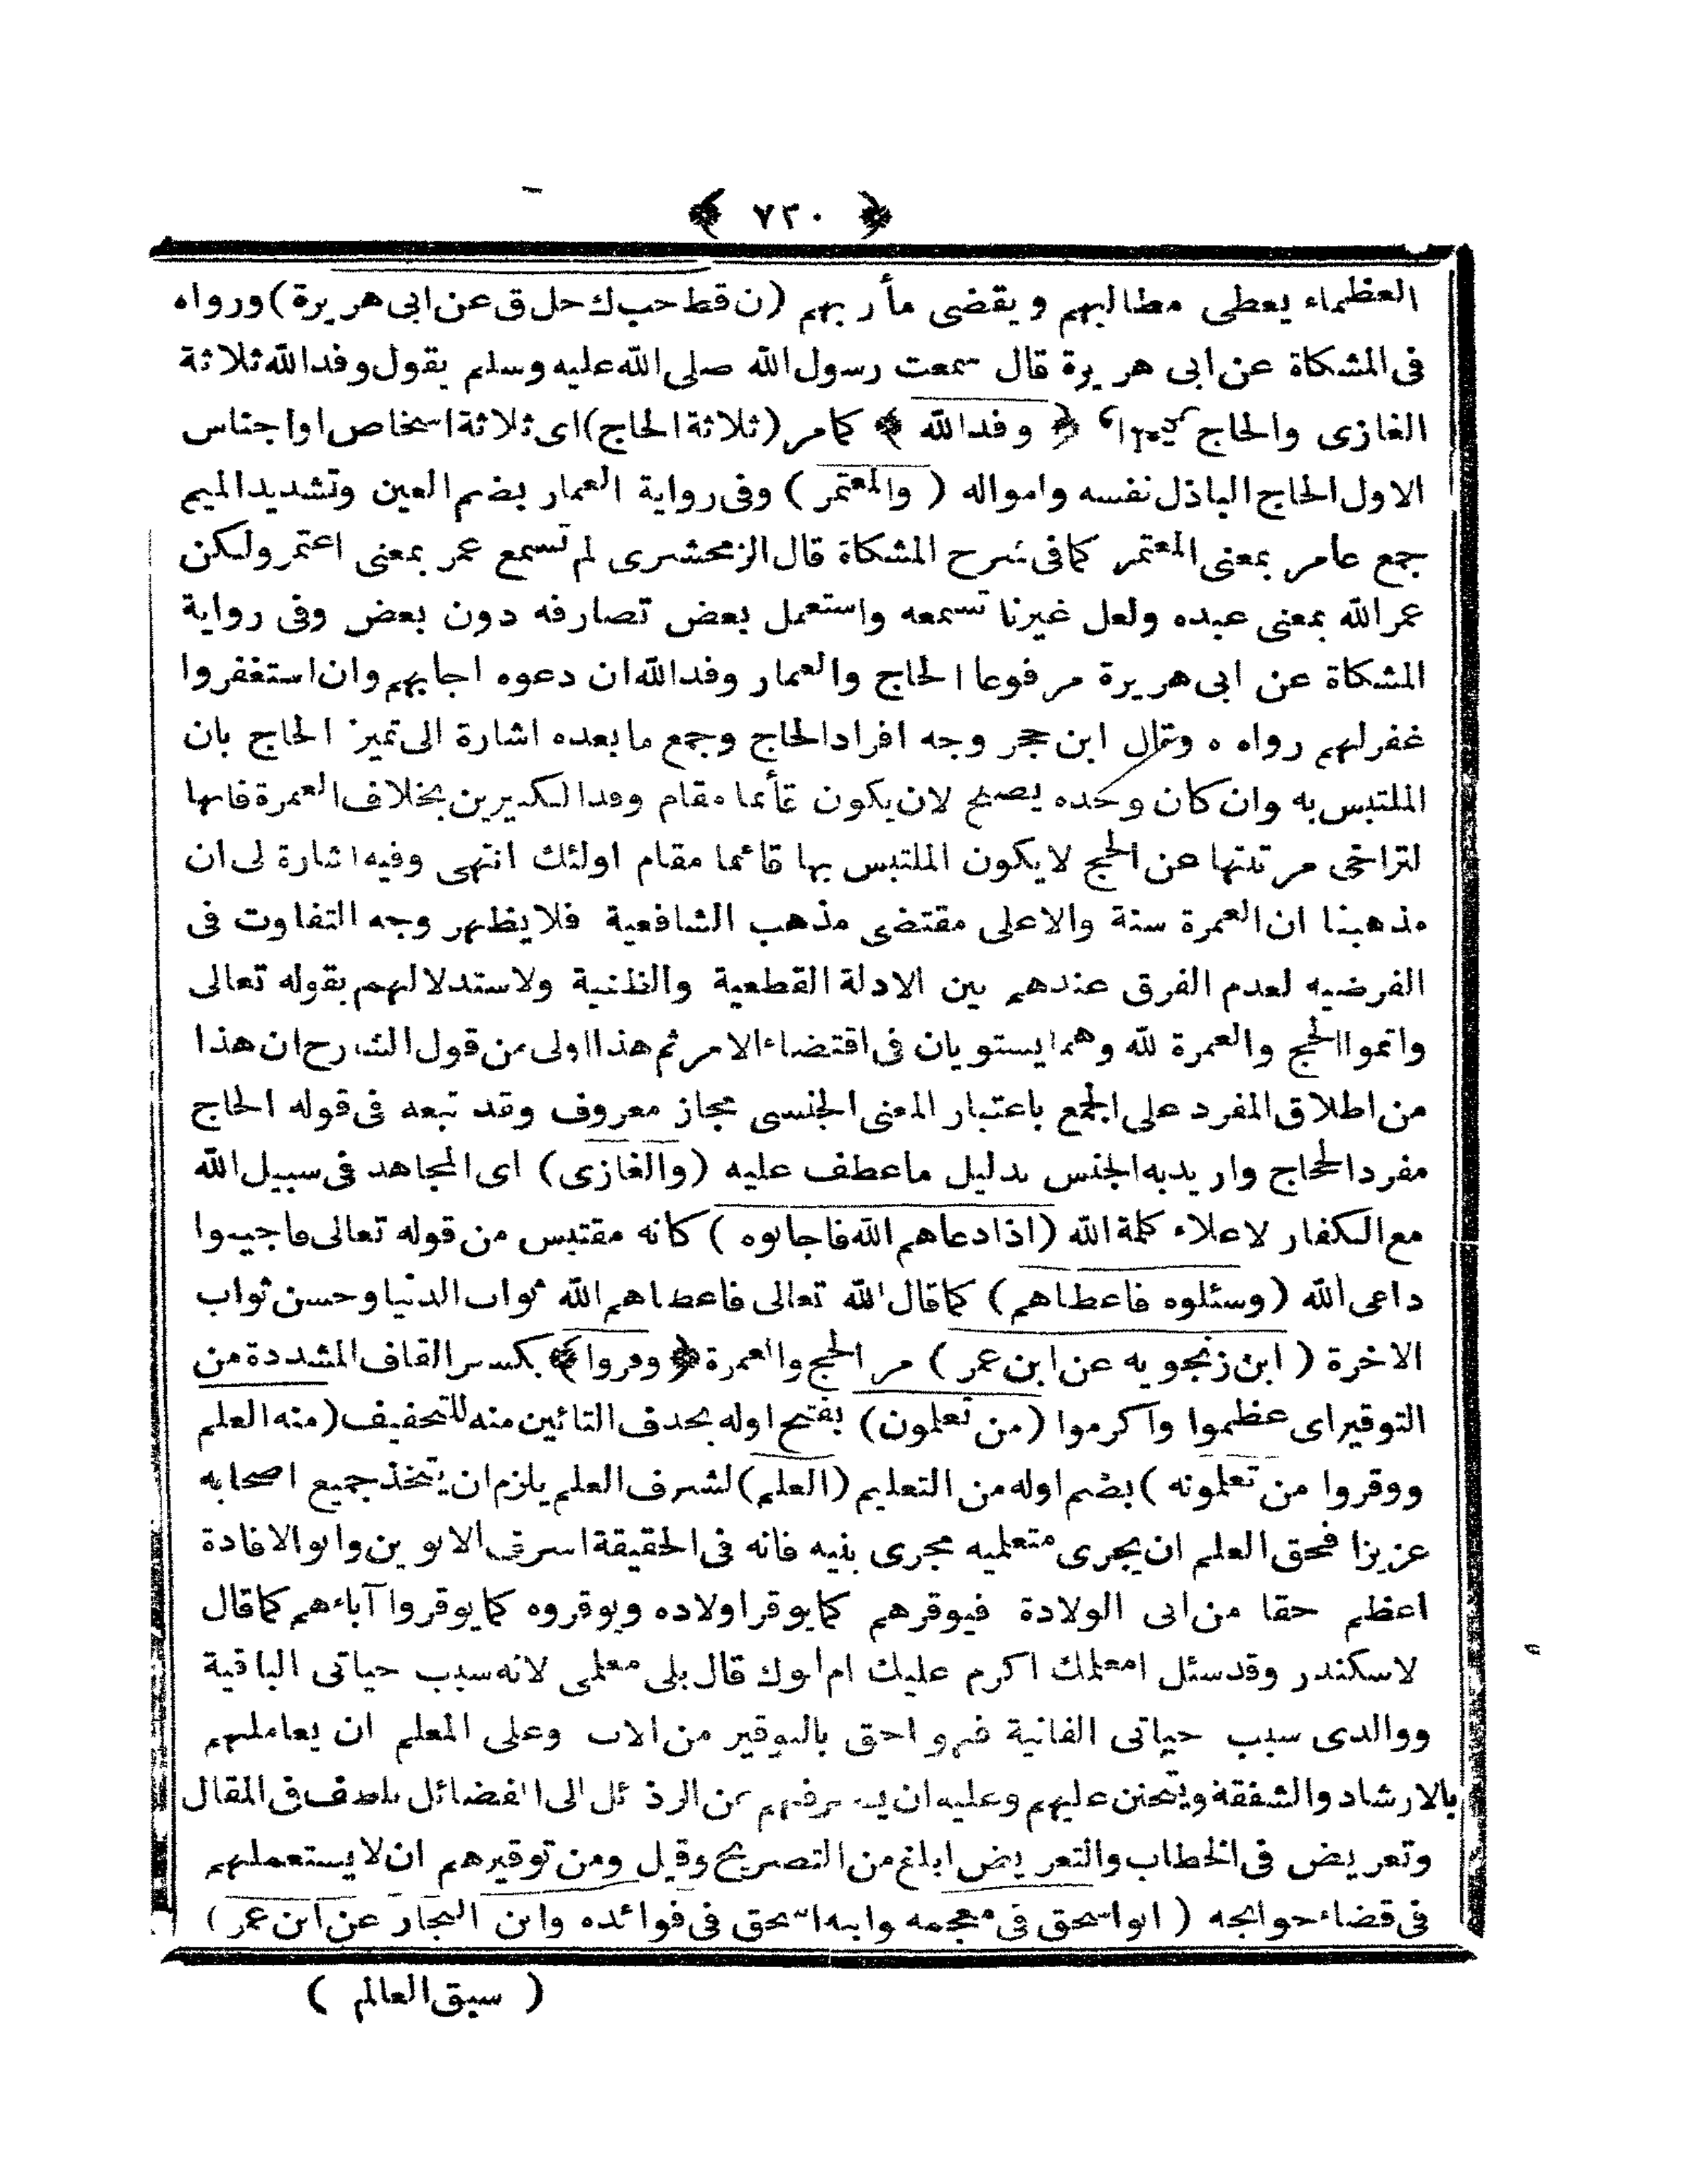 ﴿ ٧٢٠ ﴾
العظماء يعطى مطالبهم ويقضى مأربهم (ن قط حب ك حل ق عن ابى هريرة) ورواه
فى المشكاة عن ابى هريرة قال سمعت رسول الله صلى الله عليه وسلم يقول وفد الله ثلاثة
الغازى والحاج ﴿ وفد الله ﴾ كمامر (ثلاثة الحاج) اى ثلاثة اشخاص او اجناس
الاول الحاج الباذل نفسه وامواله (والمعتمر) وفى رواية العمار بضم العين وتشديد الميم
جمع عامر بمعنى المعتمر كما فى شرح المشكاة قال الزمحشرى لم نسمع عمر بمعنى اعتمر ولكن
عمر الله بمعنى عبده ولعل غيرنا تسمعه واستعمل بعض تصارفه دون بعض وفى رواية
المشكاة عن ابى هريرة مرفوعا الحاج والعمار وفد الله ان دعوه اجابهم وان استغفروا
غفر لهم رواه ه وقال ابن حجر وجه افراد الحاج وجمع ما بعده اشارة الى تميز الحاج بان
الملتبس به وان كان وحده يصح لان يكون قأئما مقام وفد الكبيرين بخلاف العمرة فانها
لتراخى مرتبتها عن الحج لا يكون الملتبس بها قائما مقام اولئك انتهى وفيه اشارة لى ان
مذهبنا ان العمرة سنة والاعلى مقتضى مذهب الشافعية فلا يظهر وجه التفاوت فى
الفرضيه لعدم الفرق عندهم بين الادلة القطعية والظنية ولاستدلالهم بقوله تعالى
واتموا الحج والعمرة لله وهما يستويان فى اقتضاء الامر ثم هذا اولى من قول الشارح ان هذا
من اطلاق المفرد على الجمع باعتبار المعنى الجنسى مجاز معروف وقد تبعه فى قوله الحاج
مفرد الحجاج واريد به الجنس بدليل ما عطف عليه (والغازى) اى المجاهد فى سبيل الله
مع الكفار لاعلاء كلمة الله (اذا دعاهم الله فاجابوه) كانه مقتبس من قوله تعالى فاجيبوا
داعى الله (وسئلوه فاعطاهم) كما قال الله تعالى فاعطاهم الله ثواب الدنيا وحسن ثواب
الاخرة (ابن زنجويه عن ابن عمر) مر الحج والعمرة ﴿ وقروا ﴾ بكسر القاف المشددة من
التوقير اى عظموا وآكرموا (من تعلمون) بفتح اوله بحذف التائين منه للتخفيف (منه العلم
ووقروا من تعلمونه) بضم اوله من التعليم (العلم) لشرف العلم يلزم ان يتخذ جميع اصحابه
عزيزا فحق العلم ان يجرى متعلميه مجرى بنيه فانه فى الحقيقة اشرف الابوين وابو الافادة
اعظم حقا من ابى الولادة فيوقرهم كما يوقر اولاده ويوقروه كما يوقروا آباءهم كما قال
لاسكندر وقد سئل امعلمك اكرم عليك ام ابوك قال بلى معلمى لانه سبب حياتى الباقية
ووالدى سبب حياتى الفانية فهو احق بالتوقير من الاب وعلى المعلم ان يعاملهم
بالارشاد والشفقة ويتحنن عليهم وعليه ان يصرفهم عن الرذائل الى الفضائل بلطف فى المقال
وتعريض فى الخطاب والتعريض ابلغ من التصريح وقيل ومن توقيرهم ان لا يستعملهم
فى قضاء حوائجه (ابو اسحق فى معجمه وابنه اسحق فى فوائده وابن النجار عن ابن عمر)
(سبق العالم)